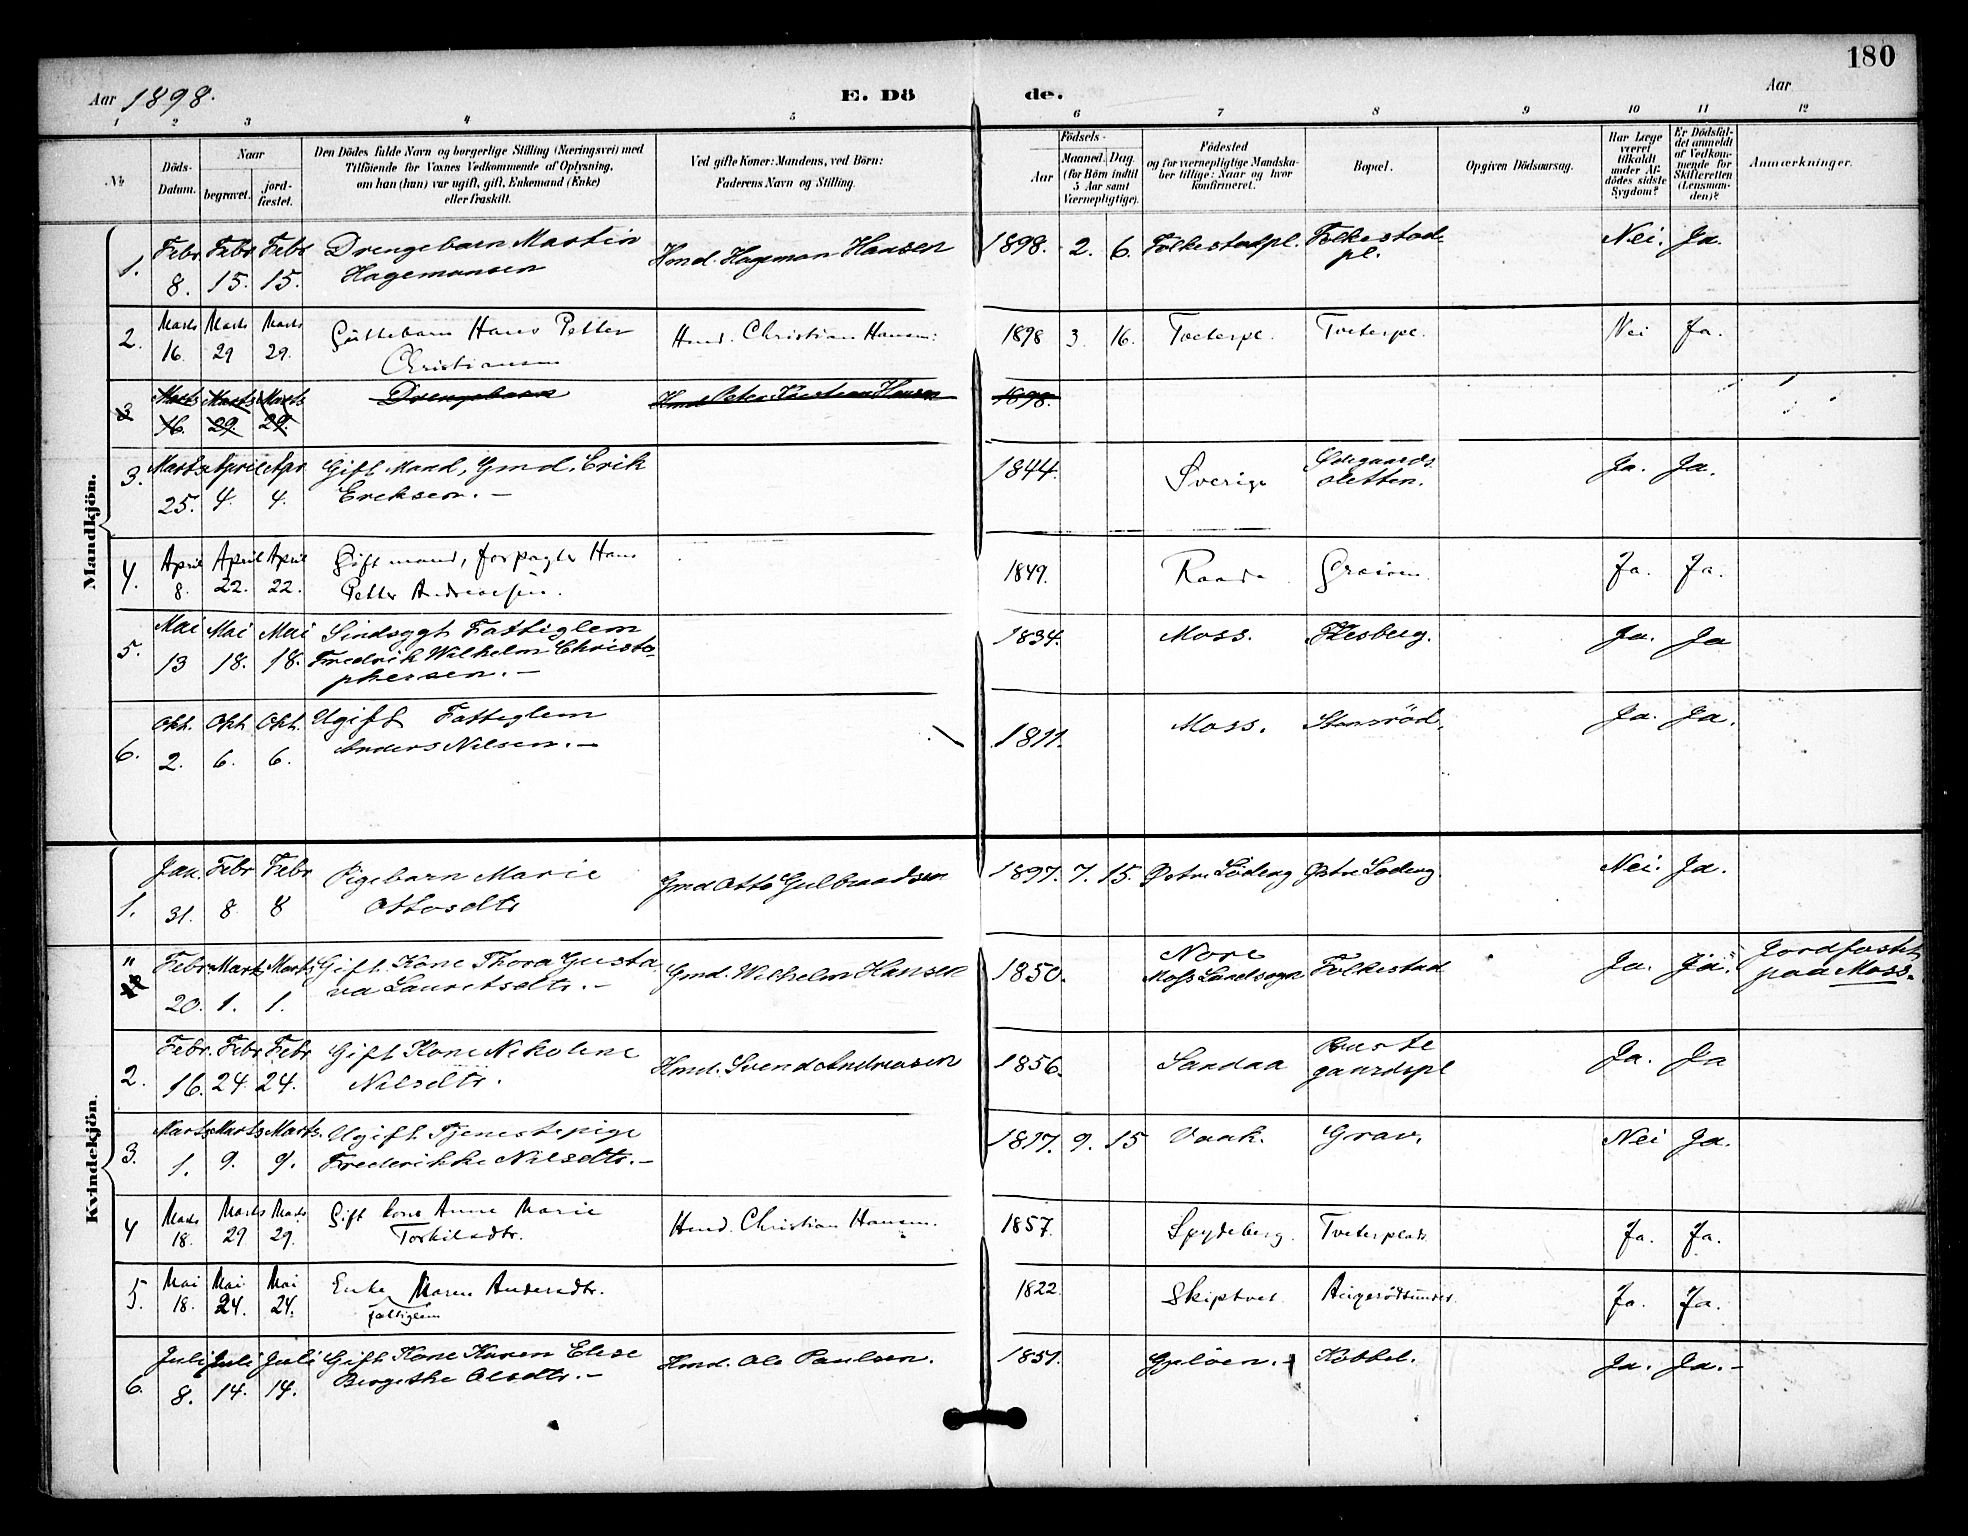 180
Aar 1898.
E. Dö de.
Aar
1 2 3 4 5 6 7 8 9 10 11 12
No
Döds-Datum.
Naar
begravet.
jord-fæstet.
Den Dödes fulde Navn og borgerlige Stilling (Næringsvei) med
Tilföiende for Voxnes Vedkommende af Oplysning,
om han (hun) var ugift, gift, Enkemand (Enke)
eller fraskilt.
Ved gifte Koner: Mandens, ved Börn:
Faderens Navn og Stilling.
Födsels-
Aar
Maaned. Dag.
(for Börn indtil
5 Aar samt
Værnepligtige).
Födested
og for værnepligtige Mandska-
ber tillige: Naar og hvor
konfirmeret.
Bopæl.
Opgiven Dödsaarsag.
Har Læge
været
tilkaldt
under Af-
dödes sidste
Sygdom?
Er Dödsfal-
det anmeldt
af Vedkom-
mende for
Skifteretten
(Lensman-
den)?
Anmærkninger.
Mandkjön.
1. Febr. 8. Febr 15. Febr 15. Drengebarn Martin Hagemansen Hmd. Hageman Hansen 1898. 2. 6. Folkestadpl. Folkestad pl. Nei. Ja.
2. Marts 16. Marts 29 Marts 29. Guttebarn Hans Petter Christiansen Hmd. Christian Hansen. 1898 3. 16. Tveterpl. Tveterpl. Nei Ja.
3 Marts 16. Marts 29. Marts 29. Drengebarn Hmd Peter Kristian Hansen 1898.
3. Marts 25. April 4. Apr 4. Gift Mand, Gmd. Erik Eriksen. – 1844. Sverige Ødegaards sletten. Ja. Ja.
4. April 8. April 22. April 22. Gift mand, forpagter Hans Petter Andreassen. 1849. Raade Ja. Ja.
5. Mai 13 Mai 18. Mai 18. Sindsygt Fattiglem Fredrik Wilhelm Christo- phersen. – 1834. Moss. Flesberg. Ja. Ja
6. Okt. 2. Okt 6. Okt. 6. Ugift Fattiglem Anders Nilsen. – 1811. Moss. Stomröd. Ja. Ja.
Kvindekjön.
1. Jan. 31. Febr 8. Febr 8 Pigebarn Marie Ottosdtr Gmd Otto Gulbrandsen 1897. 7. 15. Østre Löderg Østre Löderg. Nei. Ja.
" Febr. 20. Marts 1. Marts 1. Gift Kone Thora Gusta va Lauritsdtr. – Gmd. Wilhelm Hansen 1850. Nore Moss Landsogn Folkestad Ja. Ja. Jordfæstet paa Moss.
2. Febr. 16. Febr 24. Febr 24. Gift Kone Nikoline Nilsdtr. Hmd. Svend Andreasen 1856. Sandaa gaardspl Ja. Ja
3. Marts 1. Marts 9. Marts. 9. Ugift Tjenestepige Frederikke Nilsdtr. – 1817. 9. 15 Vaak. Grav. Nei Ja.
4 Marts 18. Marts 29 Marts 29. Gift kone Anne Marie Torkilsdtr. Hmd. Christian Hansen. 1857. Spydeberg. Tveterplads. Ja. Ja.
5. Mai 18. Mai 24. Mai 24. Enke Maren Andersdtr. fattiglem 1822. Skiptvet. Ja. Ja.
6. Juli 8. Juli 14. Juli 14. Gift Kone Karen Elise Bergithe Olsdtr. – Hmd. Ole Paulsen. 1851. Gjelöen. – Kobbel. Ja. Ja. –